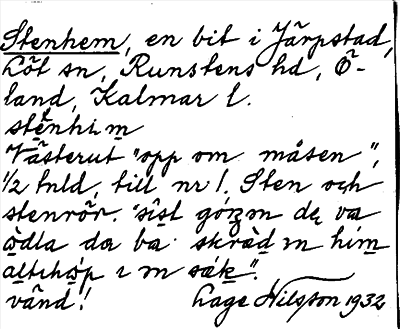 Stenhem, en bit i Järpstad,
Löt sn, Runstens hd, Ö-
land, Kalmar l.
stènhim
Västerut "opp om måsen",
1/2 tnld, till nr 1. Sten och
stenrör. "sist góizm de va
òdla da ba skràd m him
altihóp i m sák".
vänd! Lage Nilsson 1932